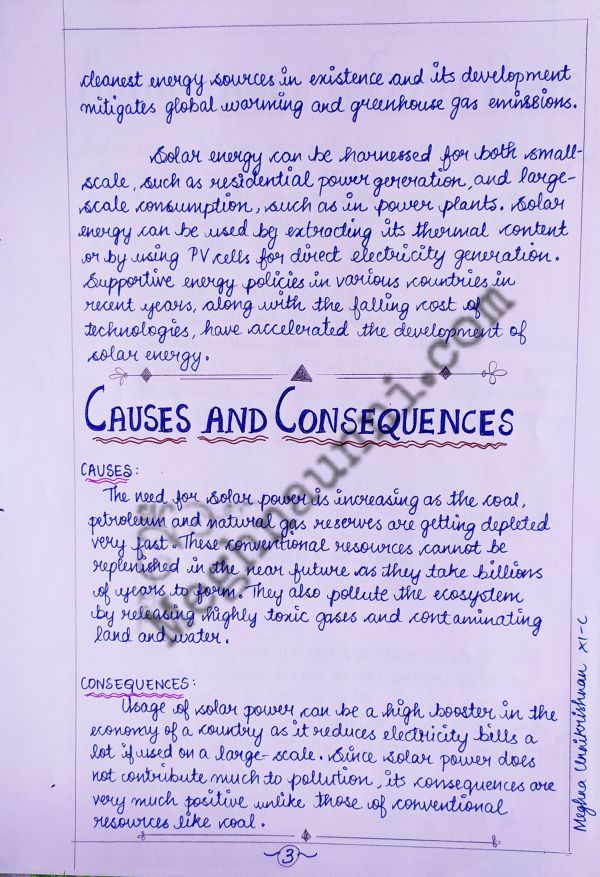 cleanest energy sources in existence and its development
mitigates global warming and greenhouse gas emissions.
Solar energy can be harnessed for both small-
scale, such as residential power generation, and large-
scale consumption, such as in power plants. Solar
energy can be used by extracting its thermal content
or by using PV cells for direct electricity generation.
Supportive energy policies in various countries in
recent years, along with the falling cost of
technologies, have accelerated the development of
solar energy.
CAUSES AND CONSEQUENCES
CAUSES:
The need for solar power is increasing as the coal,
petroleum and natural gas reserves are getting depleted
very fast. These conventional resources cannot be
replenished in the near future as they take billions
of years to form. They also pollute the ecosystem
by releasing highly toxic gases and contaminating
land and water.
CONSEQUENCES:
Usage of solar power can be a high booster in the
economy of a country as it reduces electricity bills a
lot if used on a large-scale. Since solar power does
not contribute much to pollution, its consequences are
very much positive unlike those of conventional
resources like coal.
3
Meghna Unnikrishnan XI-C
Meghnaunni.com